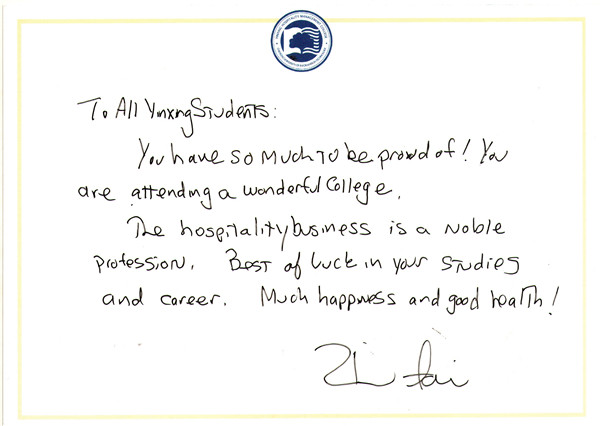 To All Ynxng Students:
You have so much to be proud of! You
are attending a wonderful College.
The hospitality business is a Noble
Profession. Best of luck in your studies
and career. Much happness and good health!